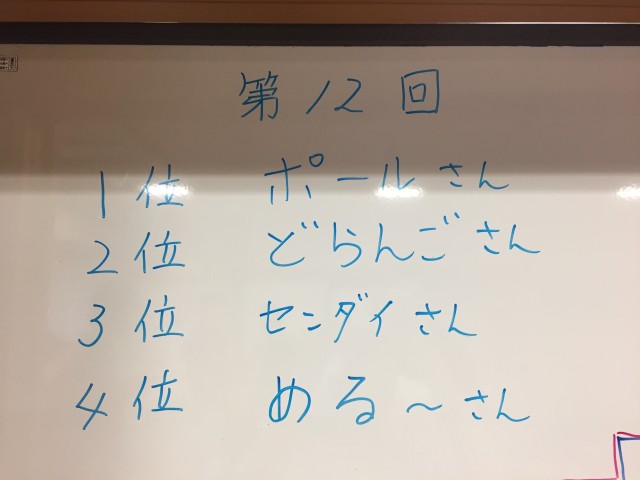 第12回
1位 ポールさん
2位 どらんごさん
3位 センダイさん
4位 める〜さん